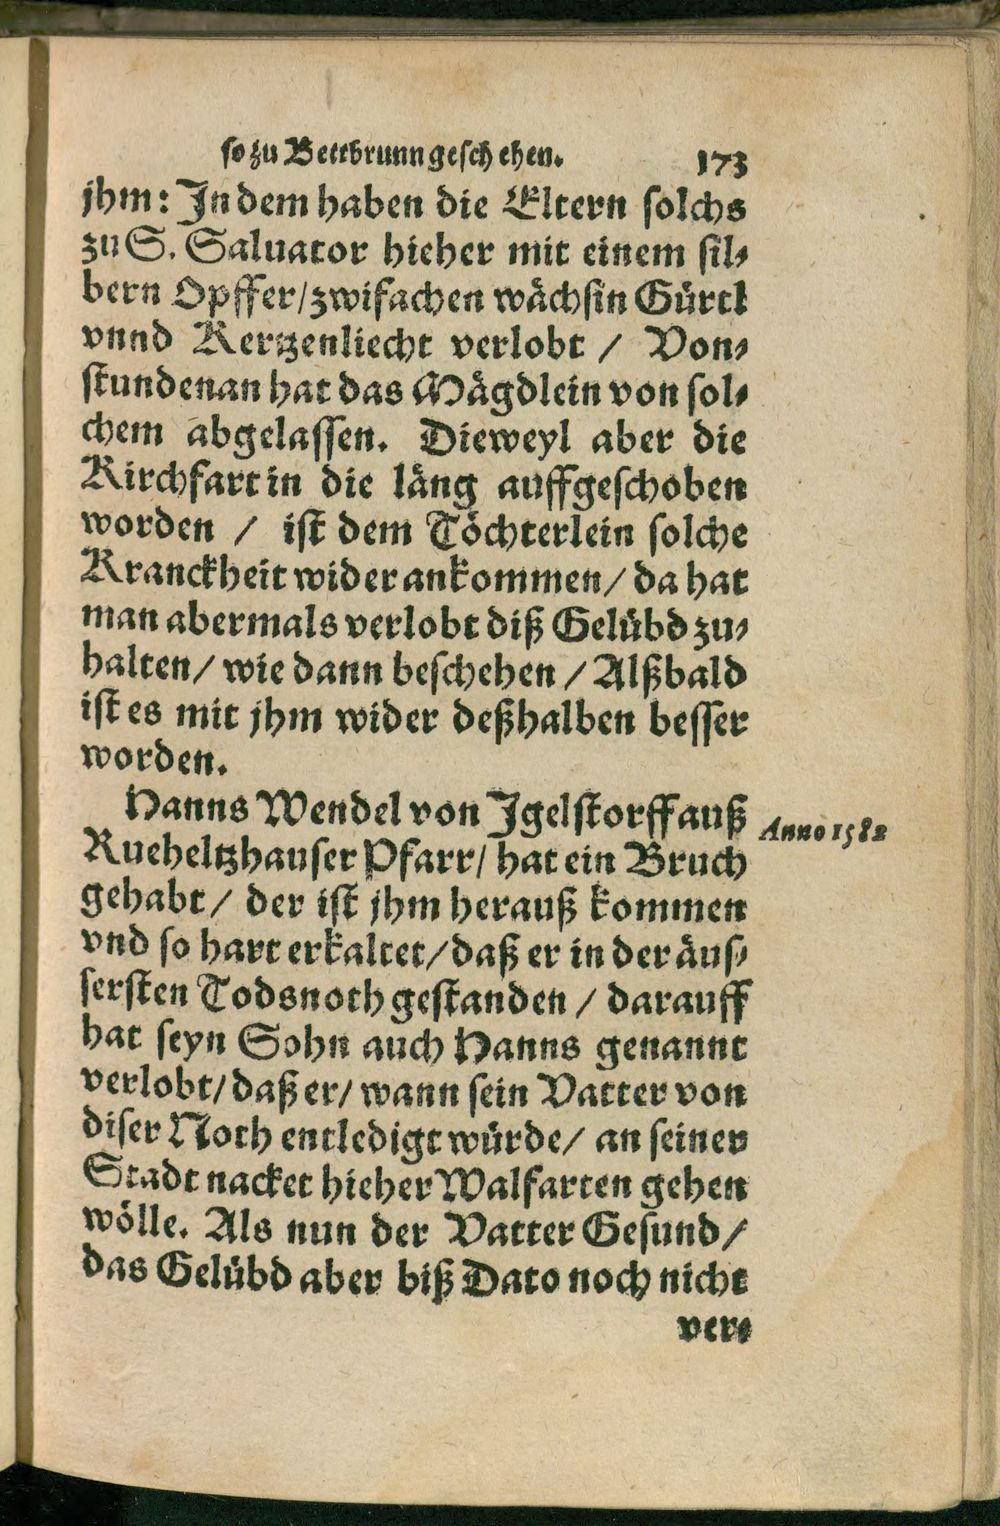 so zu Bettbrunn geschehen. 173
jhm: In dem haben die Eltern solchs
zu S. Saluator hieher mit einem sil⸗
bern Opffer/ zwifachen wächsin Gürtl
vnnd Kertzenliecht verlobt / Von⸗
stundenan hat das Mägdlein von sol⸗
chem abgelassen. Dieweyl aber die
Kirchfart in die läng auffgeschoben
worden / ist dem Töchterlein solche
Kranckheit wider ankommen/ da hat
man abermals verlobt diß Gelübd zu⸗
halten/ wie dann beschehen / Alßbald
ist es mit jhm wider deßhalben besser
worden.
Hanns Wendel von Igelstorff auß
Anno 1582
Rueheltzhauser Pfarr/ hat ein Bruch
gehabt/ der ist jhm herauß kommen
vnd so hart erkaltet/ daß er in der äus⸗
sersten Todsnoth gestanden / darauff
hat seyn Sohn auch Hanns genannt
verlobt/ daß er/ wann sein Vatter von
diser Noth entledigt würde/ an seiner
Stadt nacket hieher Walfarten gehen
wölle. Als nun der Vatter Gesund/
das Gelübd aber biß Dato noch nicht
ver⸗